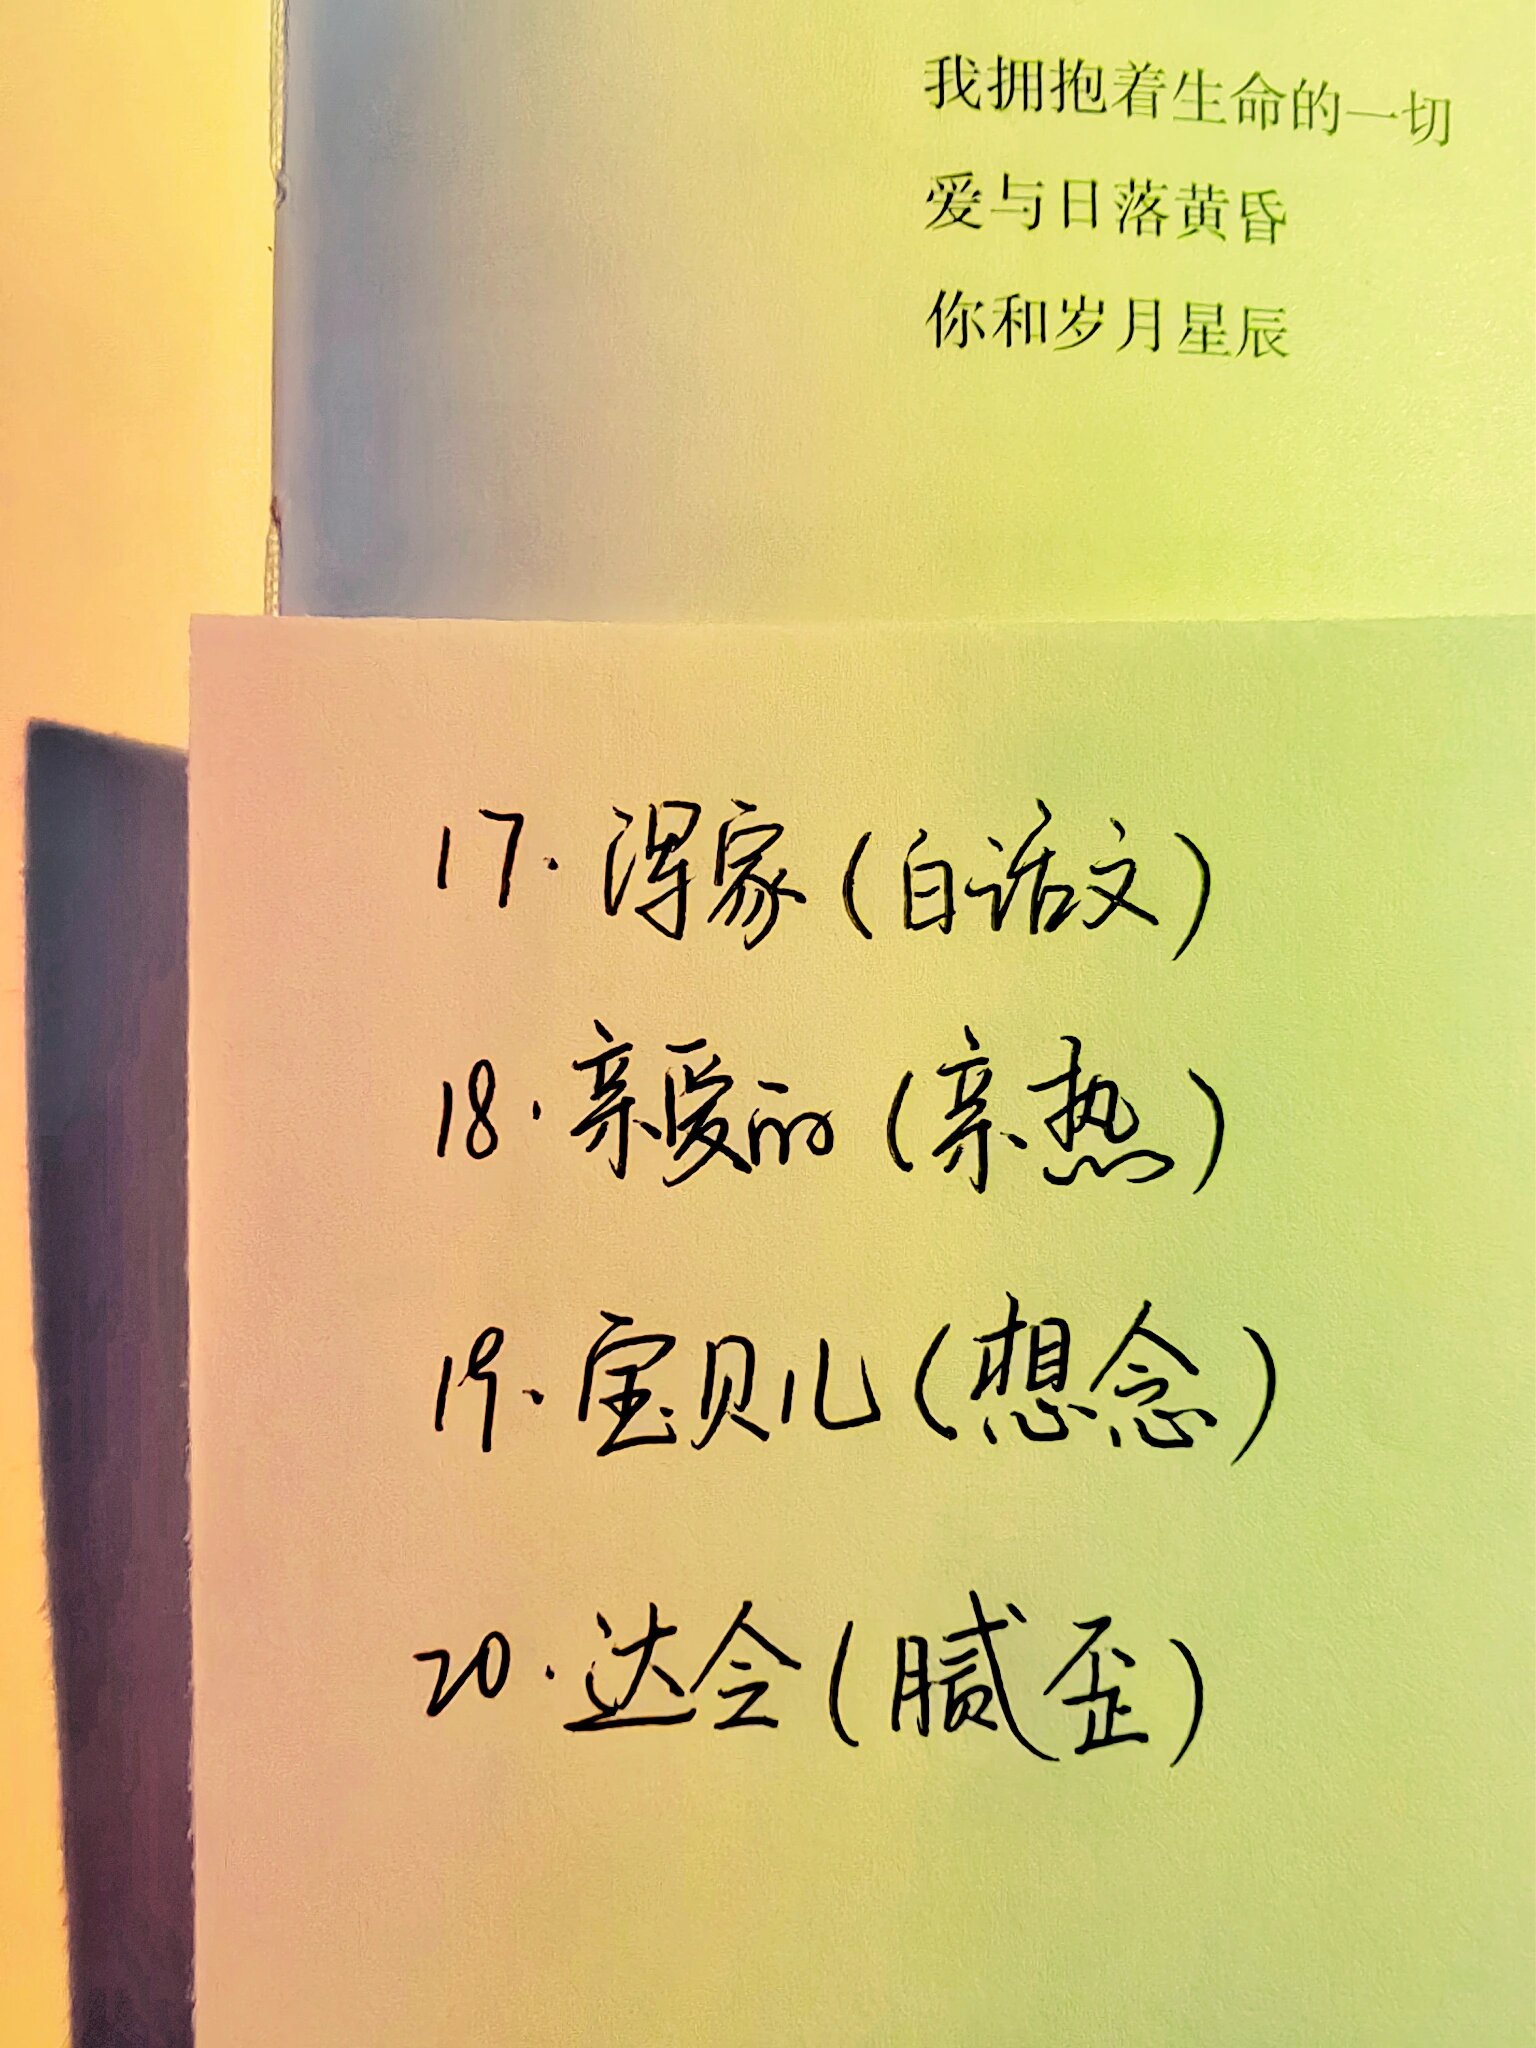 我拥抱着生命的一切
爱与日落黄昏
你和岁月星辰
17.浑家(白话文)
18.亲爱的(亲热)
19.宝贝儿(想念)
20.达会(腻歪)